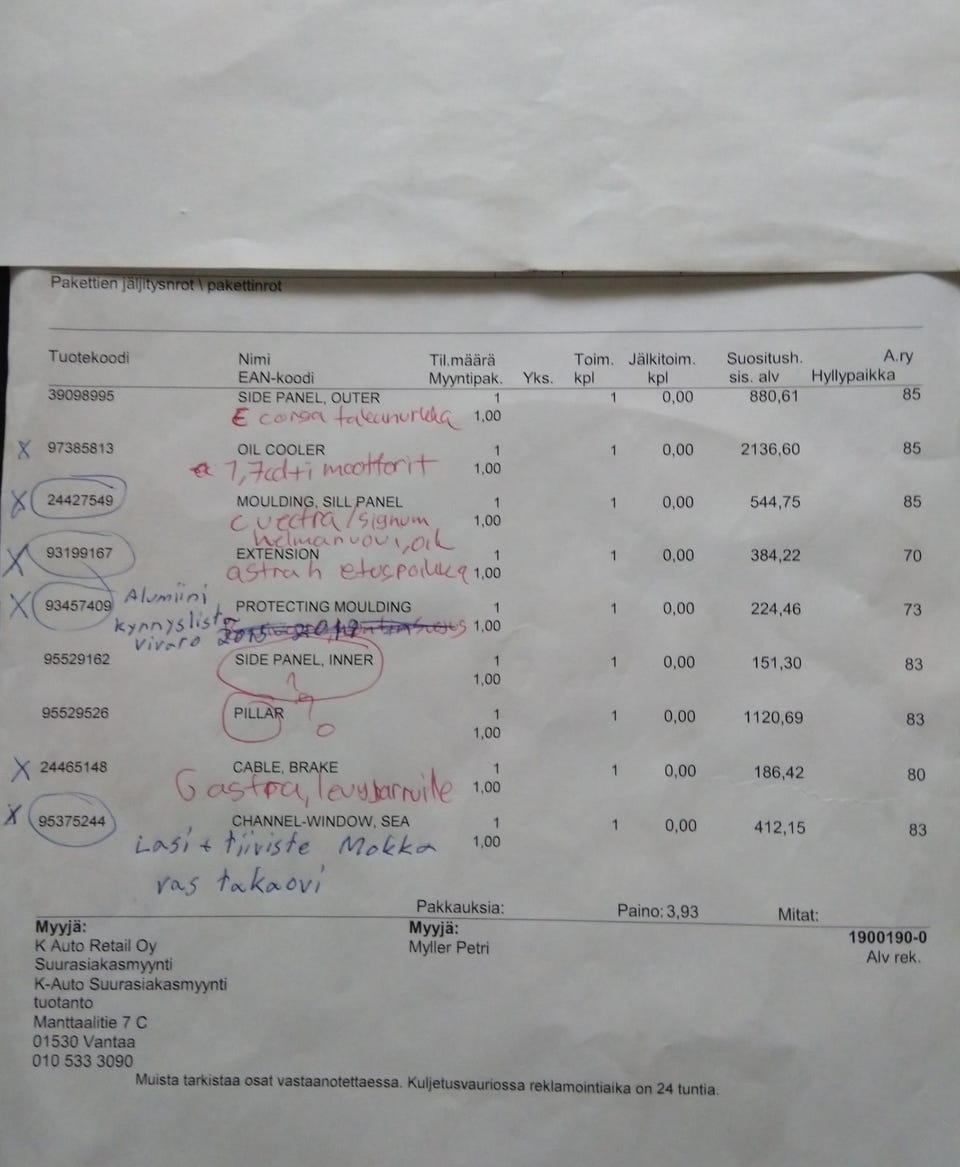 Pakettien jäljitysnrot \ pakettinrot
Tuotekoodi Nimi Til.määrä Toim. Jälkitoim. Suositush. A.ry
EAN-koodi Myyntipak. Yks. kpl kpl sis. alv Hyllypaikka
39098995 SIDE PANEL, OUTER 1 1 0,00 880,61 85
E corsa takanurkka 1,00
X 97385813 OIL COOLER 1 1 0,00 2136,60 85
1,7cdti moottorit 1,00
X 24427549 MOULDING, SILL PANEL 1 1 0,00 544,75 85
C vectra/signum 1,00
helmanuovi, oik
X 93199167 EXTENSION 1 1 0,00 384,22 70
astra h etuspoikka 1,00
X 93457409 Alumiini PROTECTING MOULDING 1 1 0,00 224,46 73
kynnyslista 1,00
vivaro
95529162 SIDE PANEL, INNER 1 1 0,00 151,30 83
? 1,00
95529526 PILLAR 1 1 0,00 1120,69 83
1,00
X 24465148 CABLE, BRAKE 1 1 0,00 186,42 80
G astra, levyjarruille 1,00
X 95375244 CHANNEL-WINDOW, SEA 1 1 0,00 412,15 83
Lasi + tiiviste Mokka 1,00
vas takaovi
Pakkauksia: Paino: 3,93 Mitat:
Myyjä: Myyjä: 1900190-0
K Auto Retail Oy Myller Petri Alv rek.
Suurasiakasmyynti
K-Auto Suurasiakasmyynti
tuotanto
Manttaalitie 7 C
01530 Vantaa
010 533 3090
Muista tarkistaa osat vastaanotettaessa. Kuljetusvauriossa reklamointiaika on 24 tuntia.